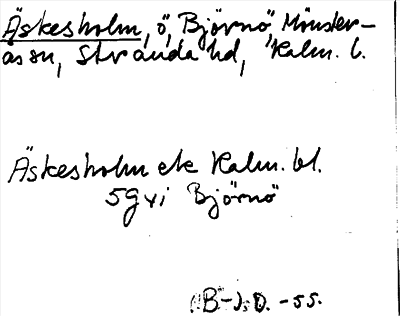 Äskesholm, ö, Björnö, Mönster-
ås sn, Stranda hd, Kalm. l.
Äskesholm ek Kalm. bl.
5g vi Björnö
B-J.D. -55.